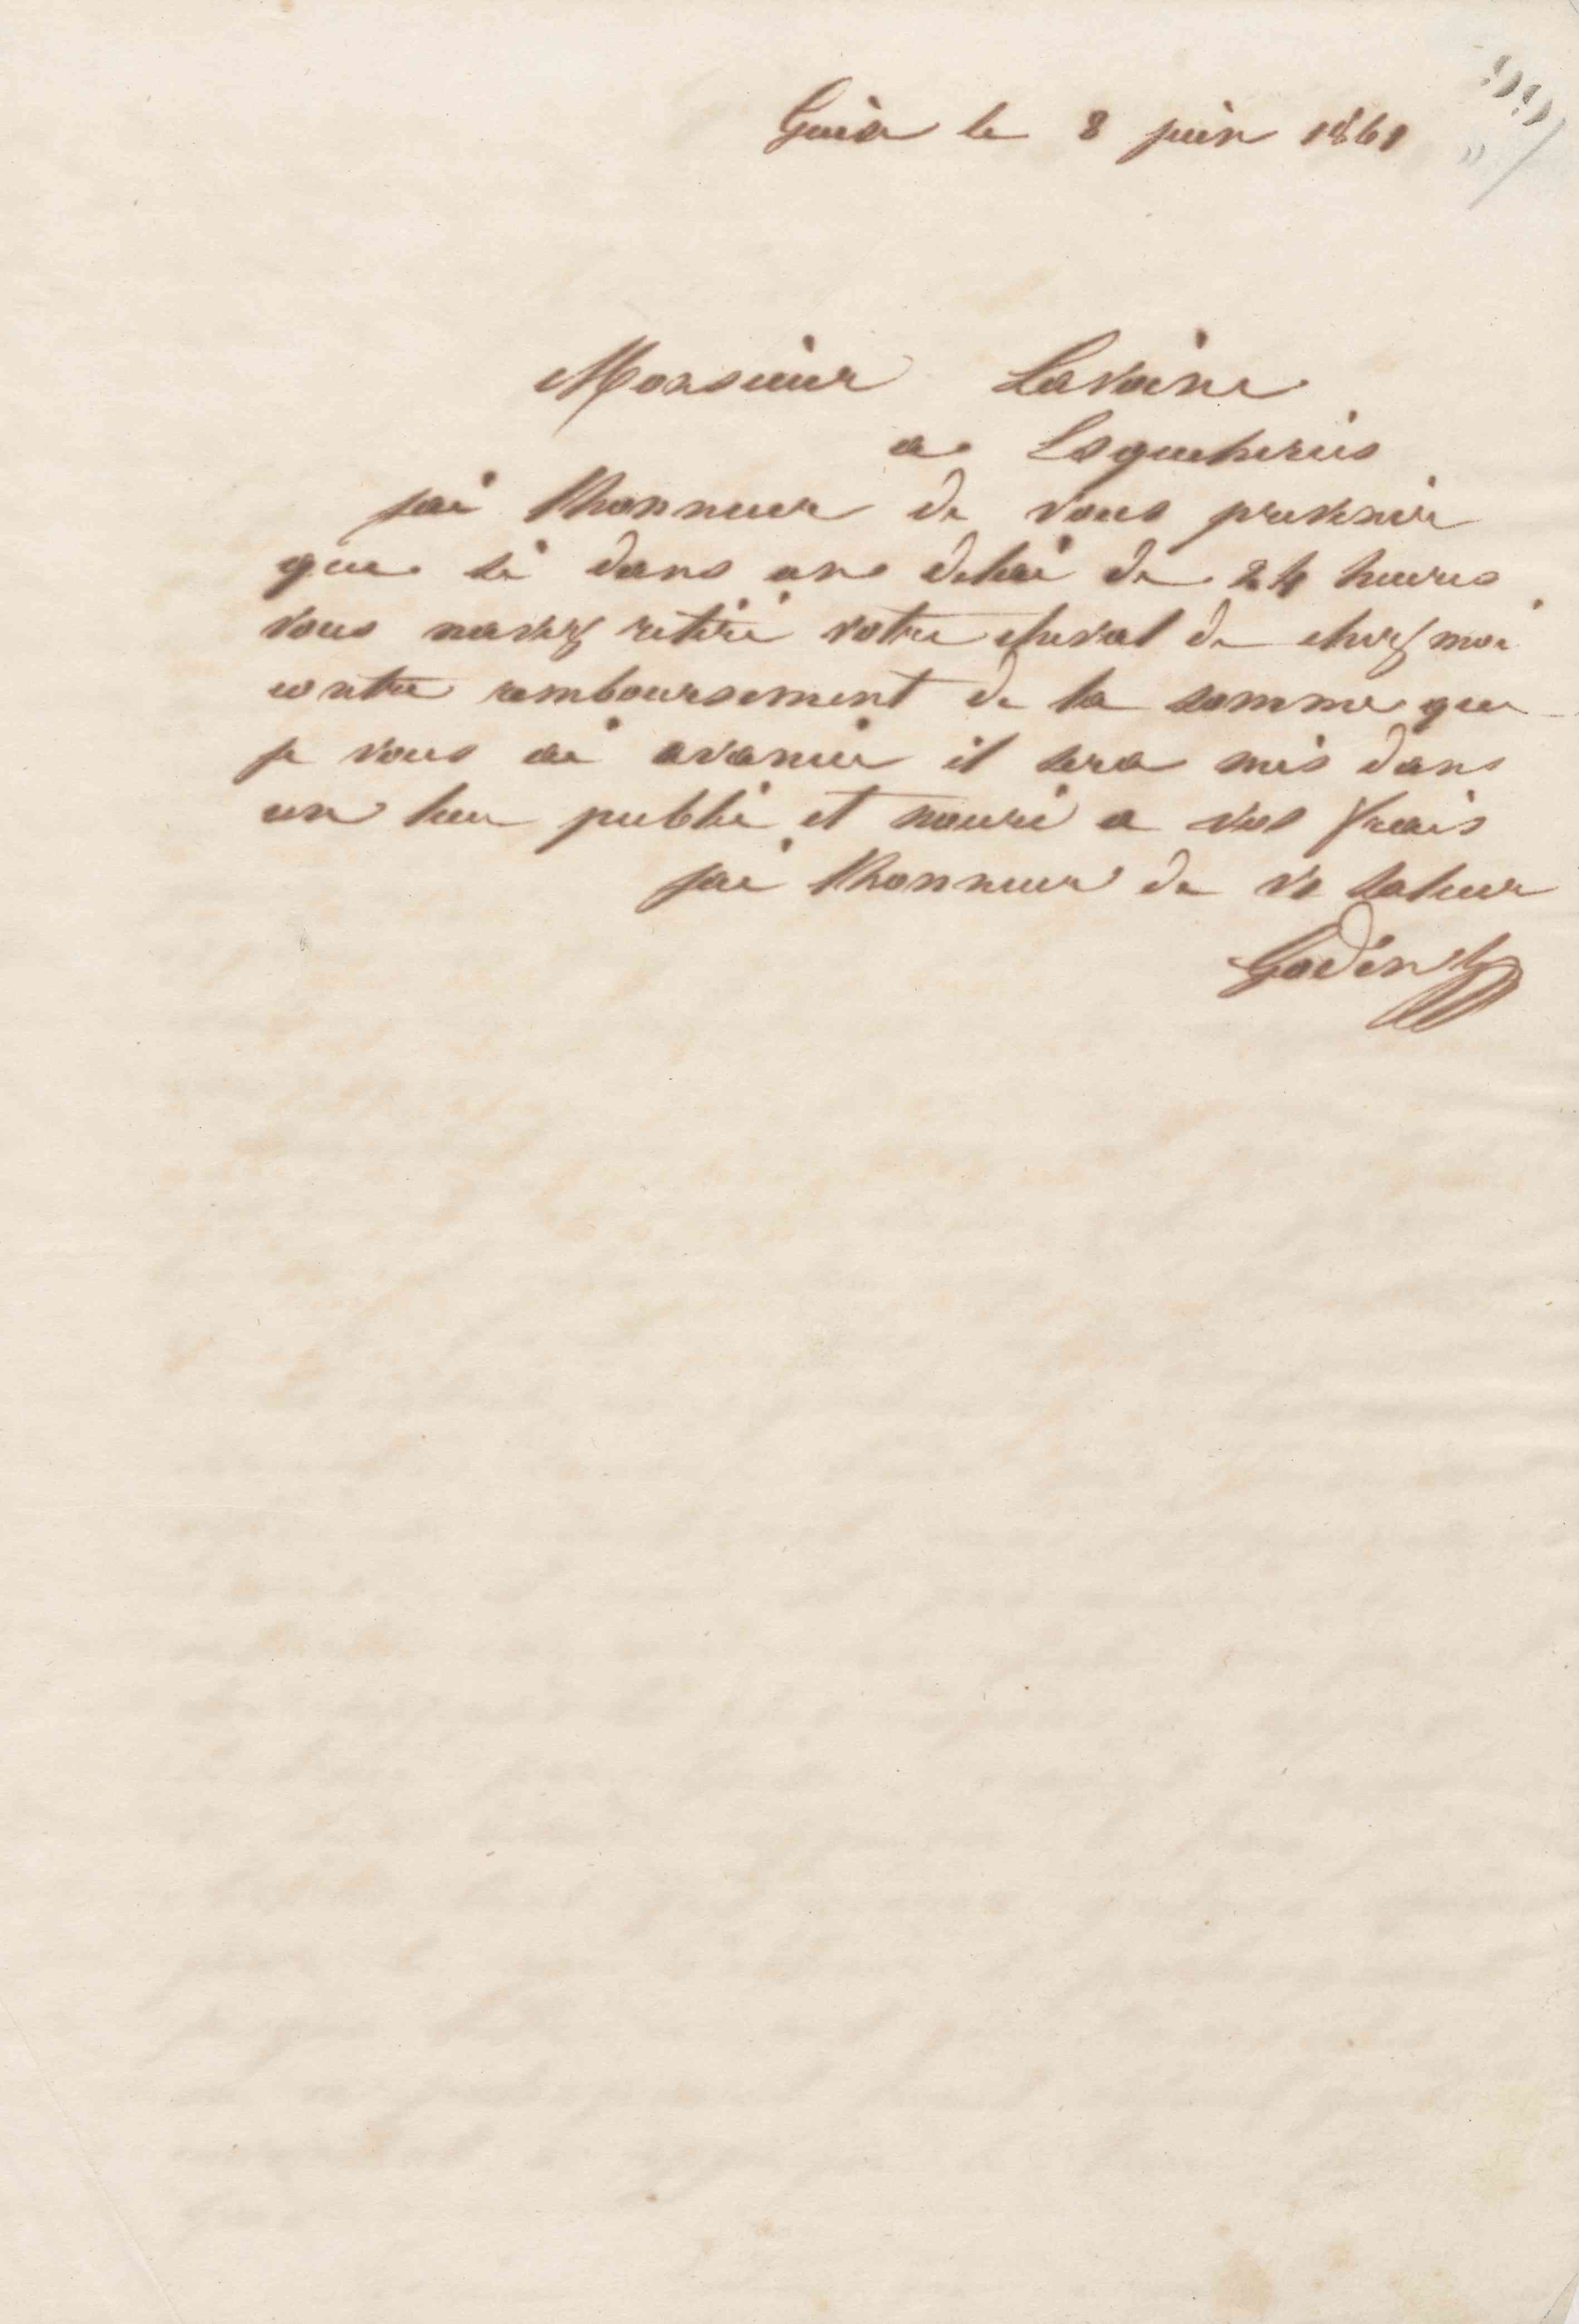 Guise le 8 juin 1861
Monsieur Lavoine
a Lesqueheries
jai lhonneur de vous prevenir
que si dans un delai de 24 heures
vous navez retiré votre cheval de chez moi
contre remboursement de la somme que
je vous ai avancée il sera mis dans
un lieu public et nouri a vos frais
jai lhonneur de vs saluer
Godin